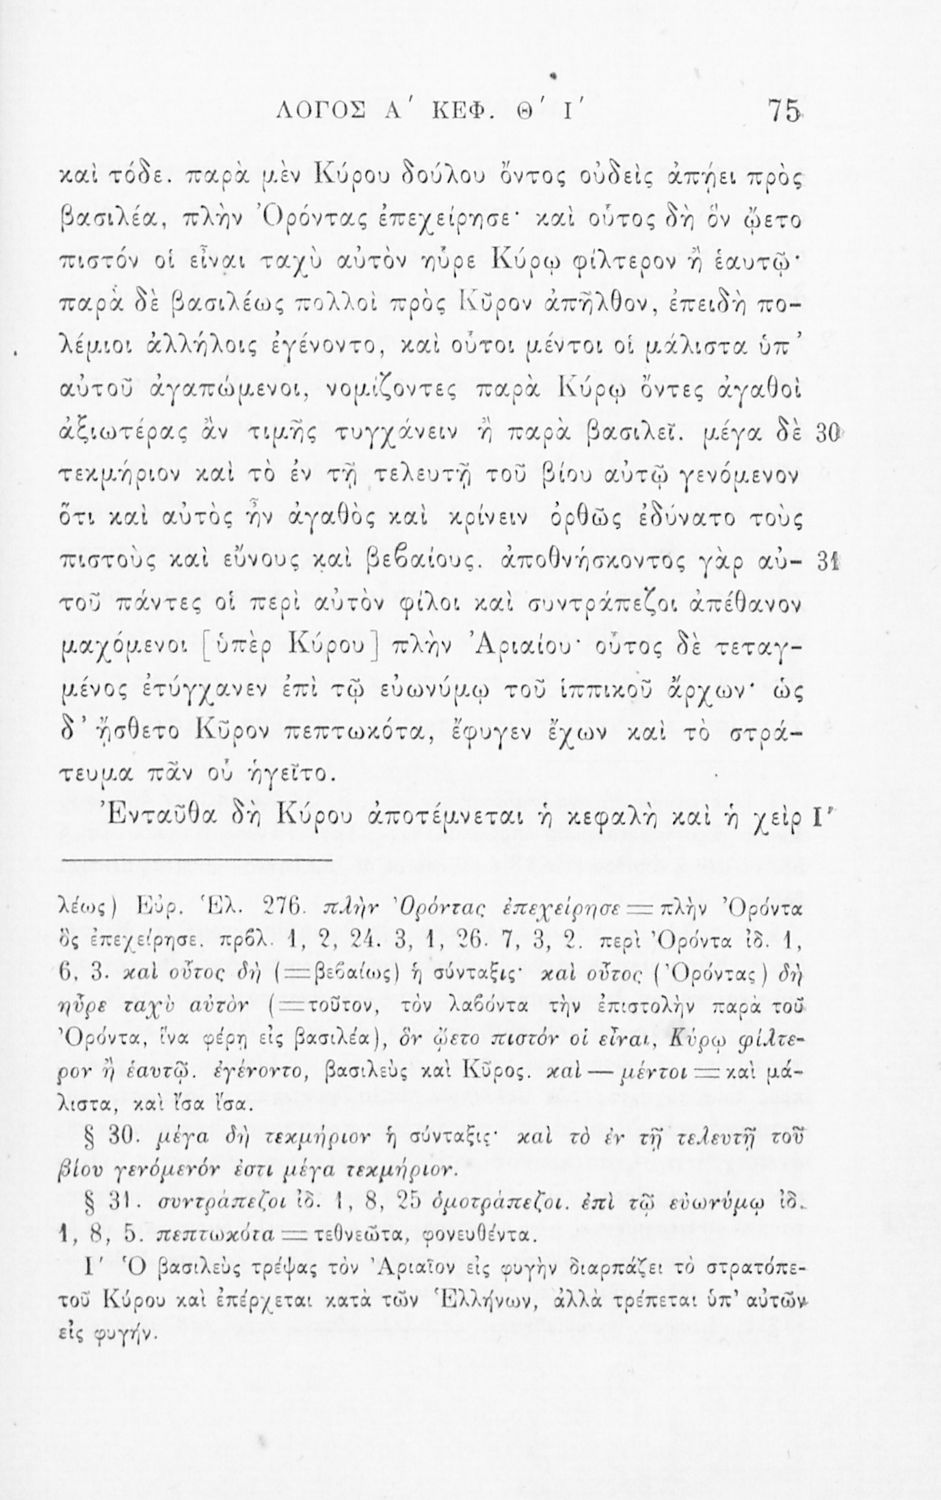 ΛΟΓΟΣ Α΄ ΚΕΦ. Θ΄ Ι΄ 75
καὶ τόδε. παρὰ μὲν Κύρου δούλου ὄντος οὐδεὶς ἀπῄει πρὸς
βασιλέα, πλὴν Ὀρόντας ἐπεχείρησε· καὶ οὗτος δὴ ὃν ᾤετο
πιστόν οἱ εἶναι ταχὺ αὐτὸν ηὗρε Κύρῳ φίλτερον ἢ ἑαυτῷ·
παρὰ δὲ βασιλέως πολλοὶ πρὸς Κῦρον ἀπῆλθον, ἐπειδὴ πο-
λέμιοι ἀλλήλοις ἐγένοντο, καὶ οὗτοι μέντοι οἱ μάλιστα ὑπ’
αὐτοῦ ἀγαπώμενοι, νομίζοντες παρὰ Κύρῳ ὄντες ἀγαθοὶ
ἀξιωτέρας ἂν τιμῆς τυγχάνειν ἢ παρὰ βασιλεῖ. μέγα δὲ 30
τεκμήριον καὶ τὸ ἐν τῇ τελευτῇ τοῦ βίου αὐτῷ γενόμενον
ὅτι καὶ αὐτὸς ἦν ἀγαθὸς καὶ κρίνειν ὀρθῶς ἐδύνατο τοὺς
πιστοὺς καὶ εὔνους καὶ βεβαίους. ἀποθνήσκοντος γὰρ αὐ- 31
τοῦ πάντες οἱ περὶ αὐτὸν φίλοι καὶ συντράπεζοι ἀπέθανον
μαχόμενοι [ὑπὲρ Κύρου] πλὴν Ἀριαίου· οὗτος δὲ τεταγ-
μένος ἐτύγχανεν ἐπὶ τῷ εὐωνύμῳ τοῦ ἱππικοῦ ἄρχων· ὡς
δ’ ᾔσθετο Κῦρον πεπτωκότα, ἔφυγεν ἔχων καὶ τὸ στρά-
τευμα πᾶν οὗ ἡγεῖτο.
Ἐνταῦθα δὴ Κύρου ἀποτέμνεται ἡ κεφαλὴ καὶ ἡ χεὶρ Ι΄
λέως) Εὐρ. Ἑλ. 276. πλὴν Ὀρόντας ἐπεχείρησε = πλὴν Ὀρόντα
ὃς ἐπεχείρησε. πρβλ. 1, 2, 24. 3, 1, 26. 7, 3, 2. περὶ Ὀρόντα ἰδ. 1,
6, 3. καὶ οὗτος δὴ (=βεβαίως) ἡ σύνταξις· καὶ οὗτος (Ὀρόντας) δὴ
ηὗρε ταχὺ αὐτὸν (=τοῦτον, τὸν λαβόντα τὴν ἐπιστολὴν παρὰ τοῦ
Ὀρόντα, ἵνα φέρῃ εἰς βασιλέα), ὃν ᾤετο πιστόν οἱ εἶναι, Κύρῳ φίλτε-
ρον ἢ ἑαυτῷ. ἐγένοντο, βασιλεὺς καὶ Κῦρος. καὶ — μέντοι = καὶ μά-
λιστα, καὶ ἴσα ἴσα.
§ 30. μέγα δὴ τεκμήριον ἡ σύνταξις· καὶ τὸ ἐν τῇ τελευτῇ τοῦ
βίου γενόμενόν ἐστι μέγα τεκμήριον.
§ 31. συντράπεζοι ἰδ. 1, 8, 25 ὁμοτράπεζοι. ἐπὶ τῷ εὐωνύμῳ ἰδ.
1, 8, 5. πεπτωκότα = τεθνεῶτα, φονευθέντα.
Ι΄ Ὁ βασιλεὺς τρέψας τὸν Ἀριαῖον εἰς φυγὴν διαρπάζει τὸ στρατόπε-
τοῦ Κύρου καὶ ἐπέρχεται κατὰ τῶν Ἑλλήνων, ἀλλὰ τρέπεται ὑπ’ αὐτῶν
εἰς φυγήν.